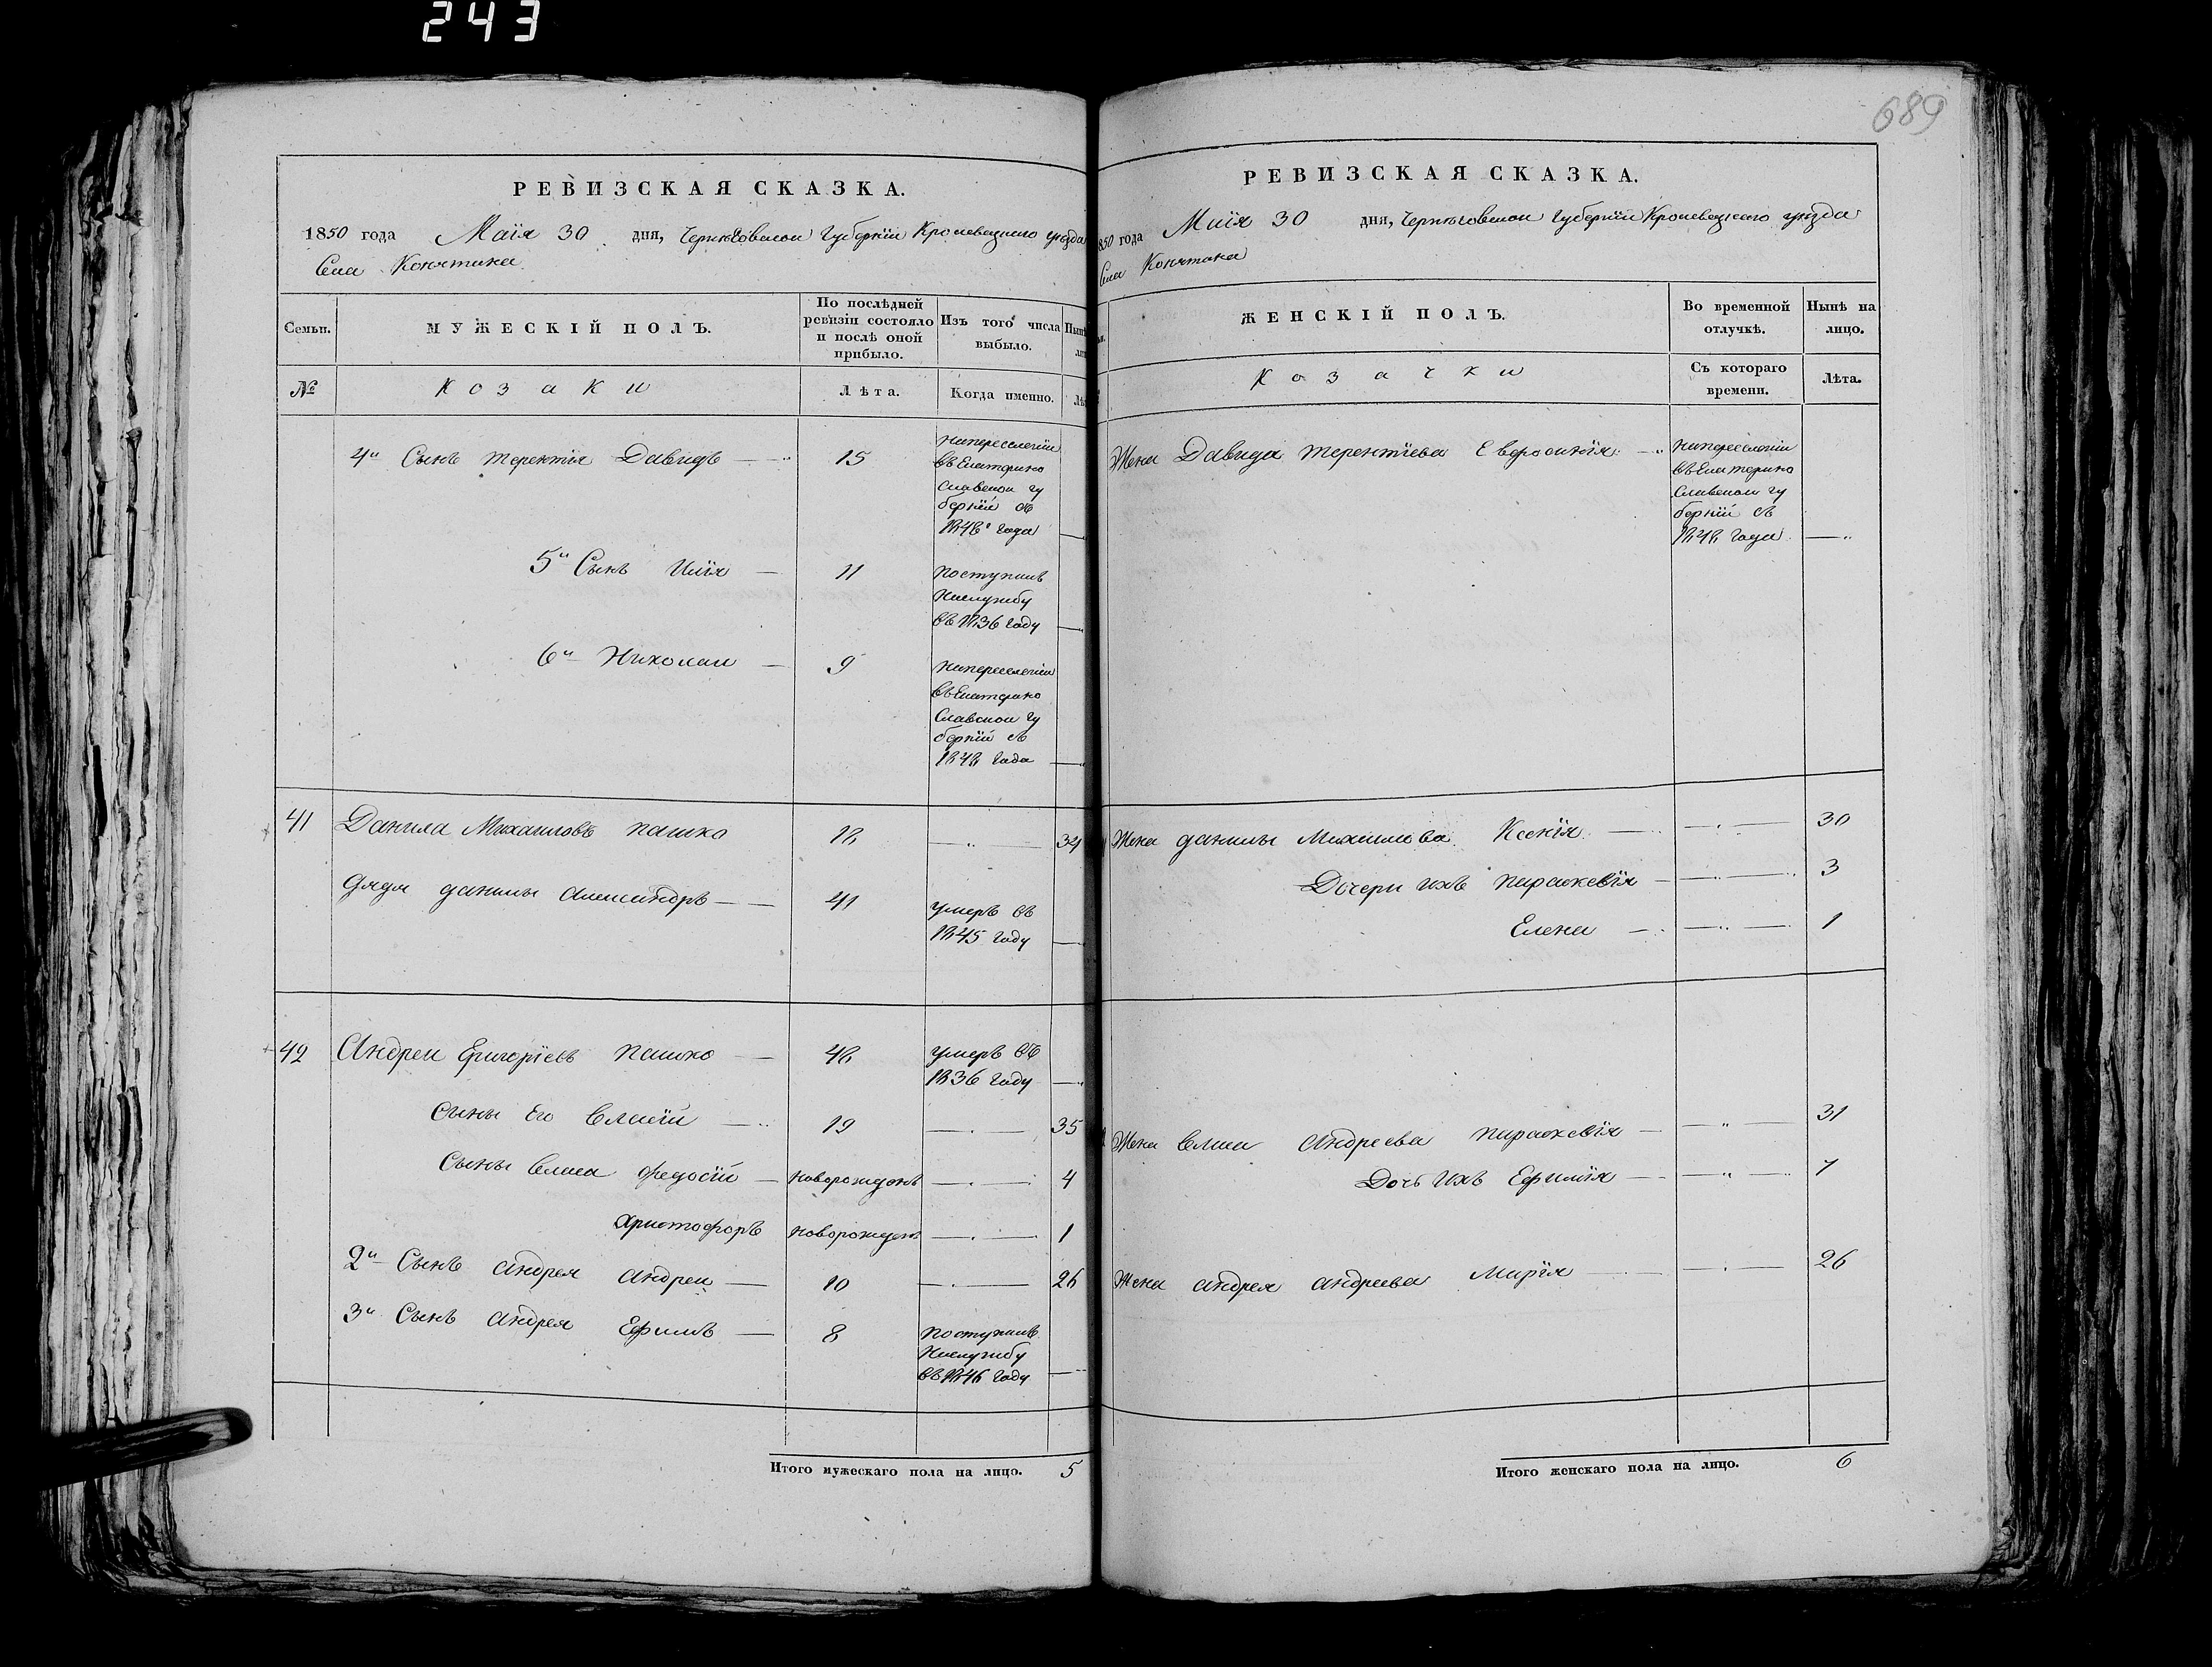 243
689
РЕВИЗСКАЯ СКАЗКА.
1850 года Маія 30 дня, Черниговской Губерніи Кролевецкаго уезда
Села Конятина
Семьи.
МУЖЕСКІЙ ПОЛЪ.
По послѣдней
ревизіи состояло
и послѣ оной
прибыло.
Изъ того числа
выбыло.
№
Козаки
Лѣта.
Когда именно.
4й Сынъ Терентія Давидъ — 15
Напереселеніи
въ Екатерино
Славской гу
берніи съ
1848 года —
5й Сынъ Илія — 11
Поступилъ
Наслужбу
въ 1836 Году —
6й Николай — 9
Напереселеніи
въ Екатерино
Славской гу
берніи съ
1848 Года —
41 Данила Михаиловъ Пашко 18 — 34
Дядя Данилы Александръ — 41
умеръ въ
1845 Году —
42 Андрей Григоріевъ Пашко — 48
умеръ въ
1836 Году —
Сыны Его Власій — 19 — 35
Сыны Власа Федосій — новорожденъ — 4
Христофоръ новорожден — 1
2й Сынъ Андрея Андрей — 10 — 26
3й Сынъ Андрея Ефимъ — 8
Поступилъ
Наслужбу
въ 1846 Году —
Итого мужескаго пола на лицо. 5
РЕВИЗСКАЯ СКАЗКА.
850 года Маія 30 дня, Черниговской Губерніи Кролевецкаго уезда
Села Конятина
ЖЕНСКІЙ ПОЛЪ.
Во временной
отлучкѣ.
Нынѣ на
лицо.
Козачки
Съ котораго
времени.
Лѣта.
Жена Давида Терентіева Евфросинія —
Напереселеніи
въ Екатерино
Славской гу
берніи съ
1848 Года —
Жена Данилы Михаилова Ксенія — 30
Дочери ихъ Параскевія — 3
Елена — 1
Жена Власа Андреева Параскевія — 31
Дочь ихъ Ефимія — 7
Жена Андрея Андреева Марія — 26
Итого женскаго пола на лицо. 6